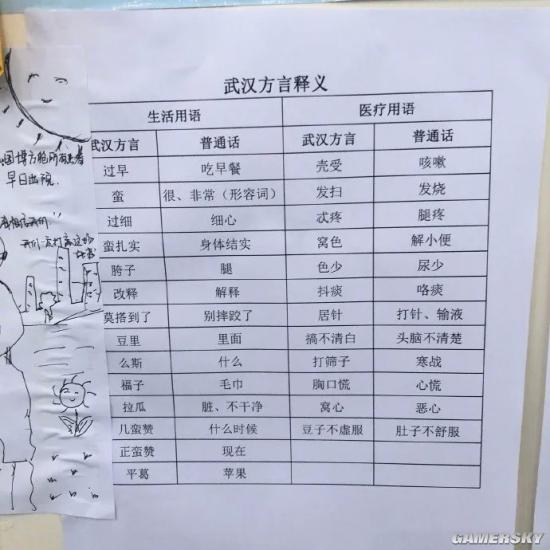 武汉方言释义
生活用语 医疗用语
武汉方言 普通话 武汉方言 普通话
过早 吃早餐 壳受 咳嗽
蛮 很、非常（形容词） 发扫 发烧
过细 细心 忒疼 腿疼
蛮扎实 身体结实 窝色 解小便
胯子 腿 色少 尿少
改释 解释 抖痰 咯痰
莫搭到了 别摔跤了 居针 打针、输液
豆里 里面 搞不清白 头脑不清楚
么斯 什么 打筛子 寒战
福子 毛巾 胸口慌 心慌
拉瓜 脏、不干净 窝心 恶心
几蛮赞 什么时候 豆子不虚服 肚子不舒服
正蛮赞 现在
平葛 苹果
早日出院
GAMERSKY